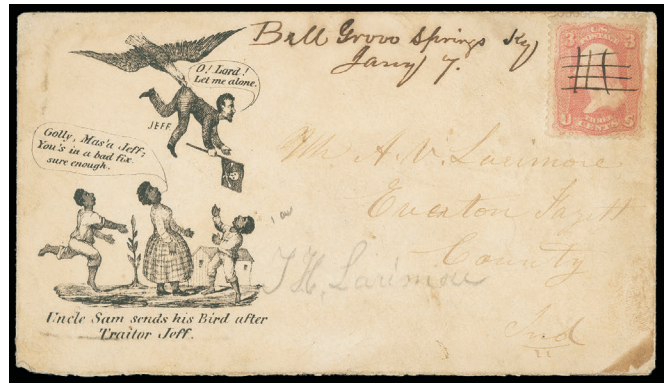 Bell Grove Springs Ky
Jany 7.
O! Lord!
Let me alone.
JEFF
Golly, Mas'a Jeff;
You's in a bad fix
sure enough.
Uncle Sam sends his Bird after
Traitor Jeff.
U.S.
POSTAGE
3 3
THREE
U CENTS S
Mr A. V. Larimore
Everton Fayett
County
Ind
T H. Larimore